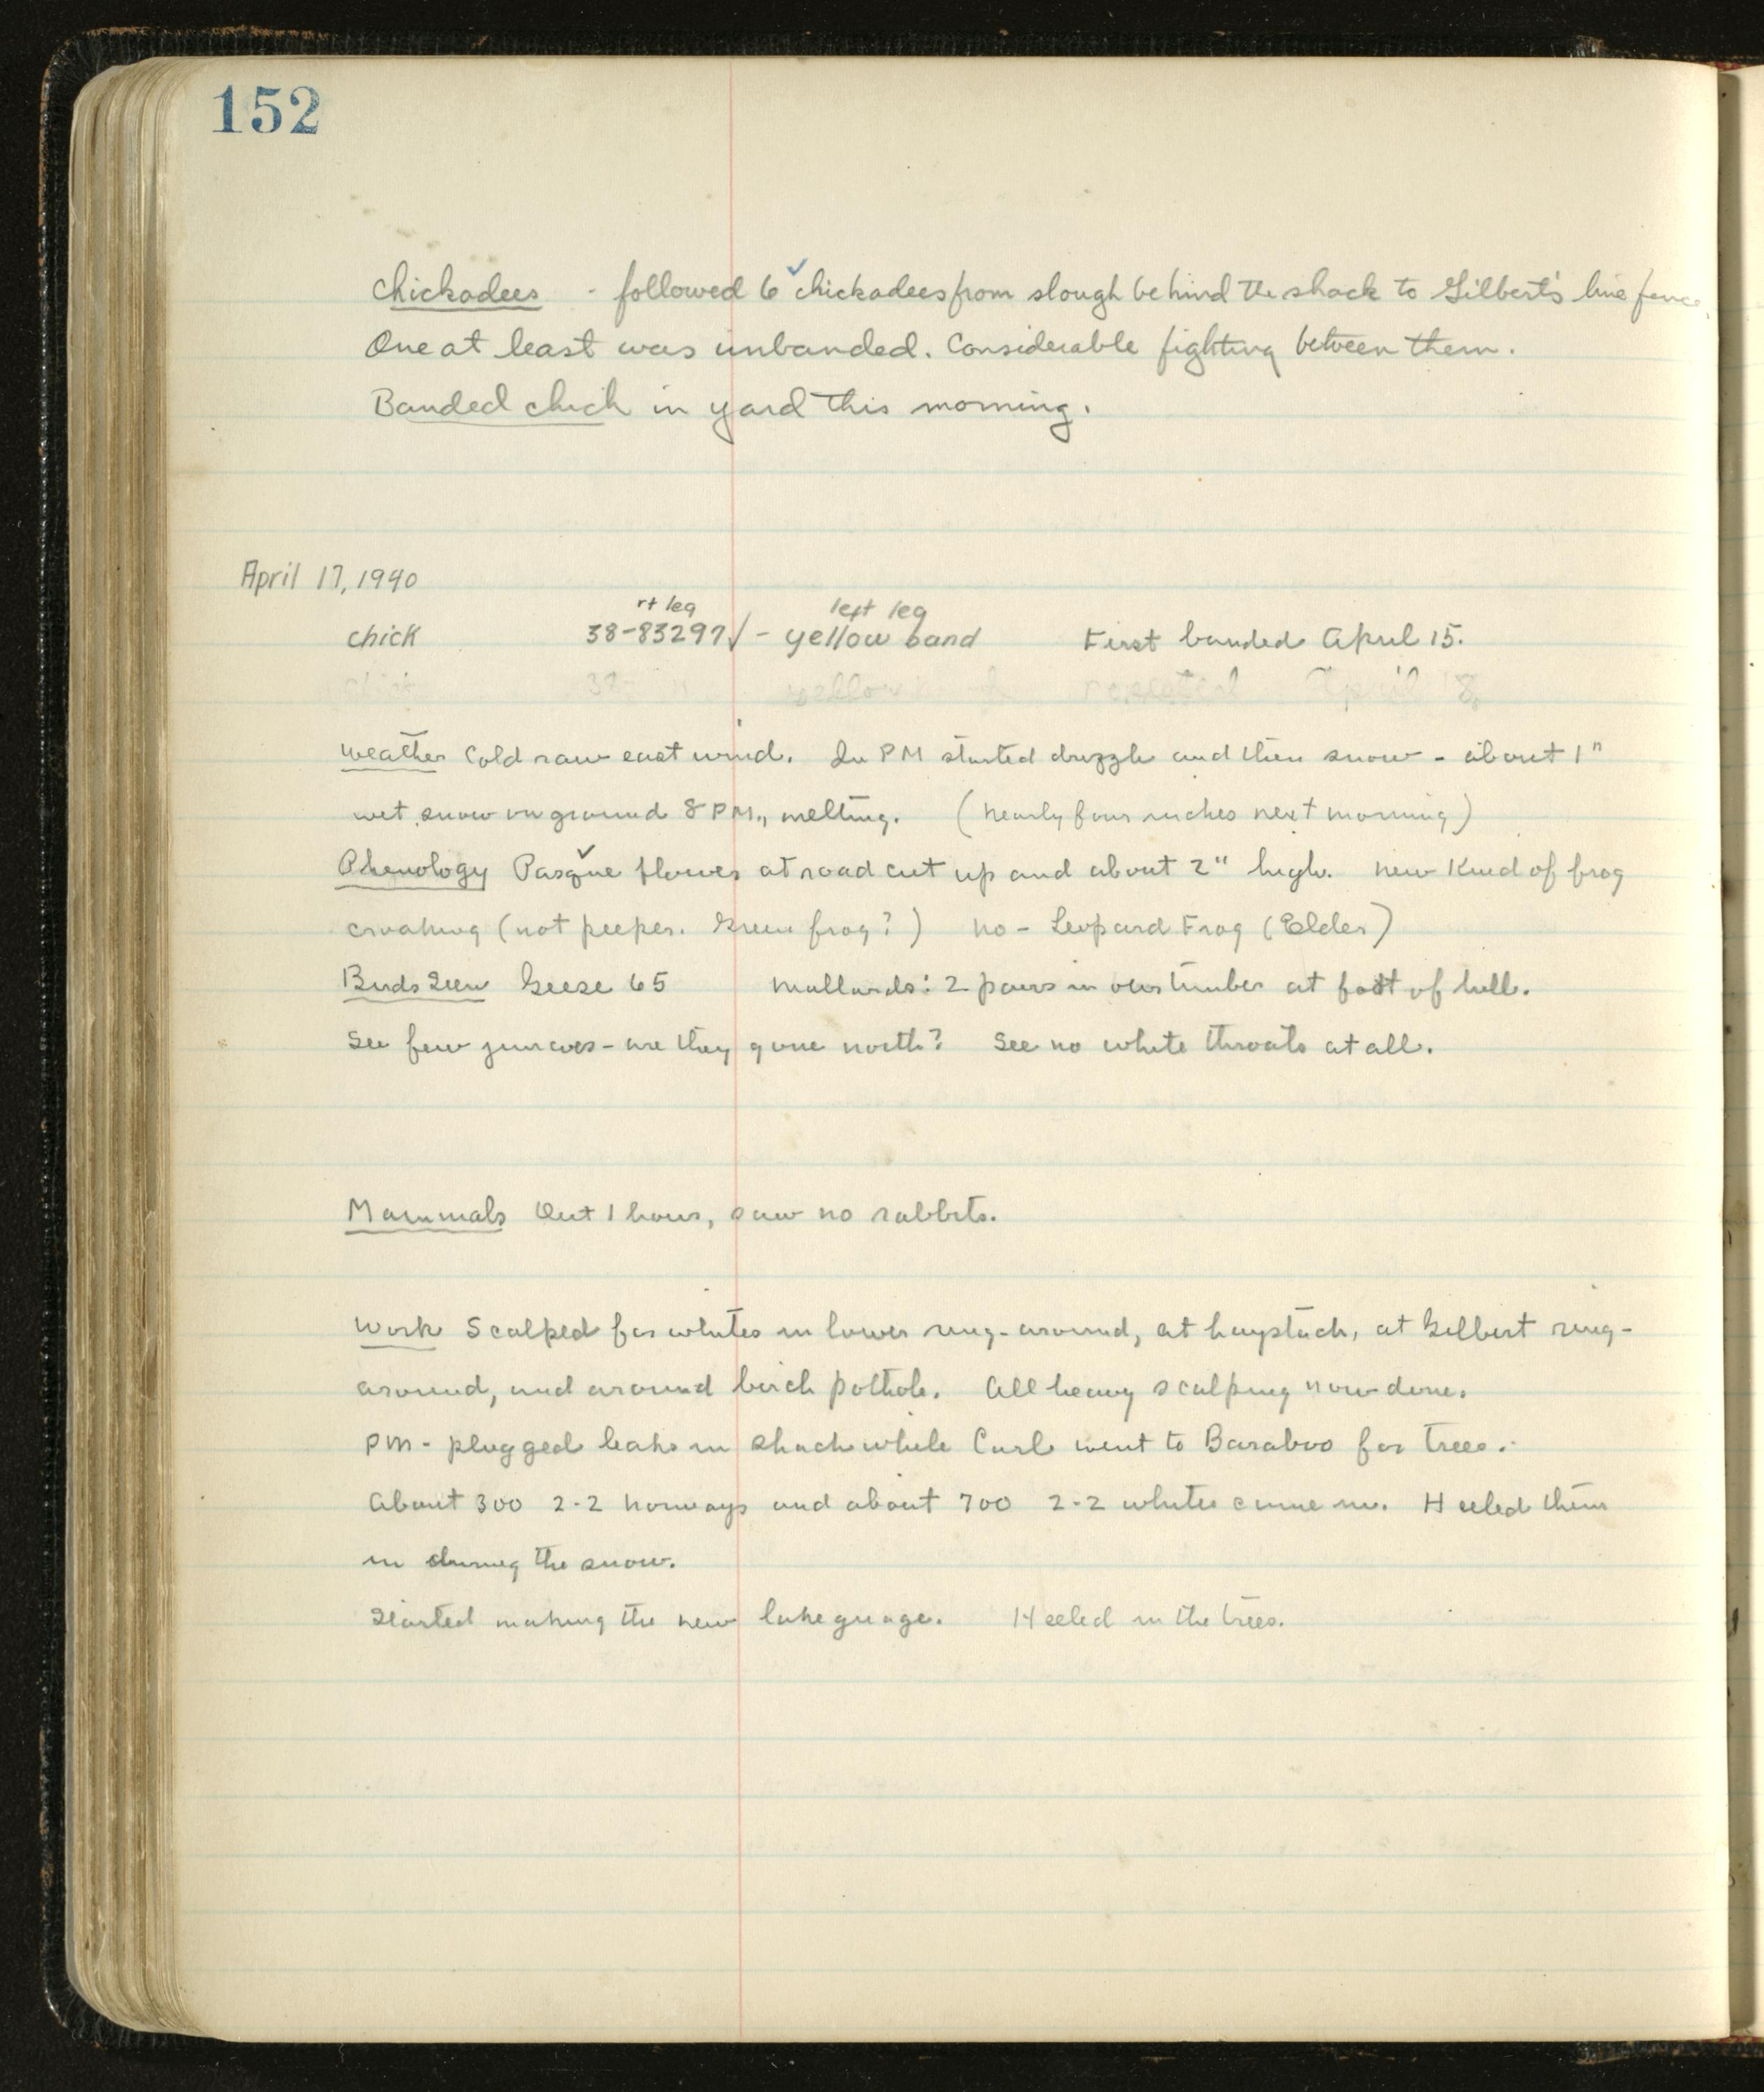 152
Chickadees - followed 6 ✓ chickadees from slough behind the shack to Gilbert's line fence.
One at least was unbanded. Considerable fighting between them.
Banded chick in yard this morning.
April 17, 1940
rt leg left leg
chick 38-83297✓ - yellow band First banded April 15.
chick 38- " yellow repeated April 18
Weather Cold raw east wind. In PM started drizzle and then snow - about 1"
wet snow on ground 8 PM., melting. (Nearly four inches next morning)
Phenology Pasque flower at road cut up and about 2" high. New kind of frog
croaking (not peeper. Green frog?) No - Leopard Frog (Elder)
Birds Seen Geese 65 Mallards: 2 pairs in our timber at foot of hill.
See few juncoes - are they gone north? See no white throats at all.
Mammals Out 1 hour, saw no rabbits.
Work Scalped for whites in lower ring-around, at haystack, at Gilbert ring-
around, and around birch pothole. All heavy scalping now done.
PM - plugged leaks in shack while Carl went to Baraboo for trees.
About 300 2-2 Norways and about 700 2-2 whites came in. Heeled them
in during the snow.
Started making the new lake guage. Heeled in the trees.